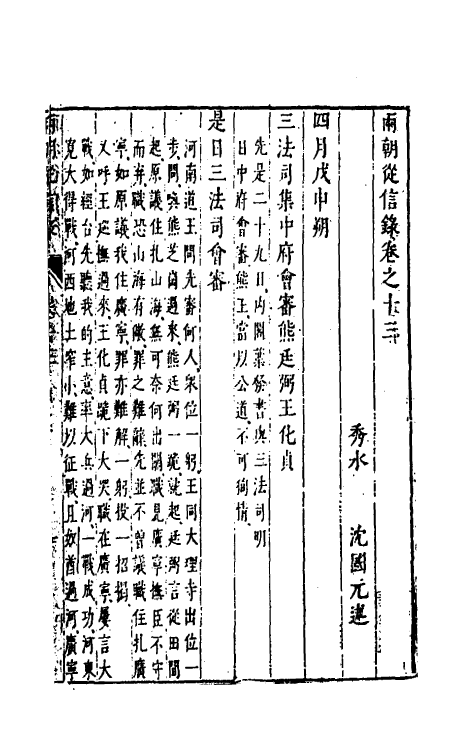 兩朝從信錄卷之十三
秀水　沈國元述
四月戊申朔
三法司集中府會審熊廷弼王化貞
先是二十九日內閣葉發書與三法司明
日中府會審熊王當以公道不可狥情
是日三法司會審
河南道王問先審何人眾位一躬王同大理寺出位一
步問喚熊芝岡過來熊廷弼一跪就起廷弼言從田間
起原議住扎山海無可奈何出關職見廣寧撫臣不守
而弃職恐山海有敵罪之難辭先並不曾議職住扎廣
寧如原議我住廣寧罪亦難解一躬投一招揭
又呼王巡撫過來王化貞跪下大哭職在廣寧屢言大
戰如經台先聽我的主意率大兵過河一戰成功河東
寬大得戰河西地土窄小難以征戰且奴酋過河廣寧